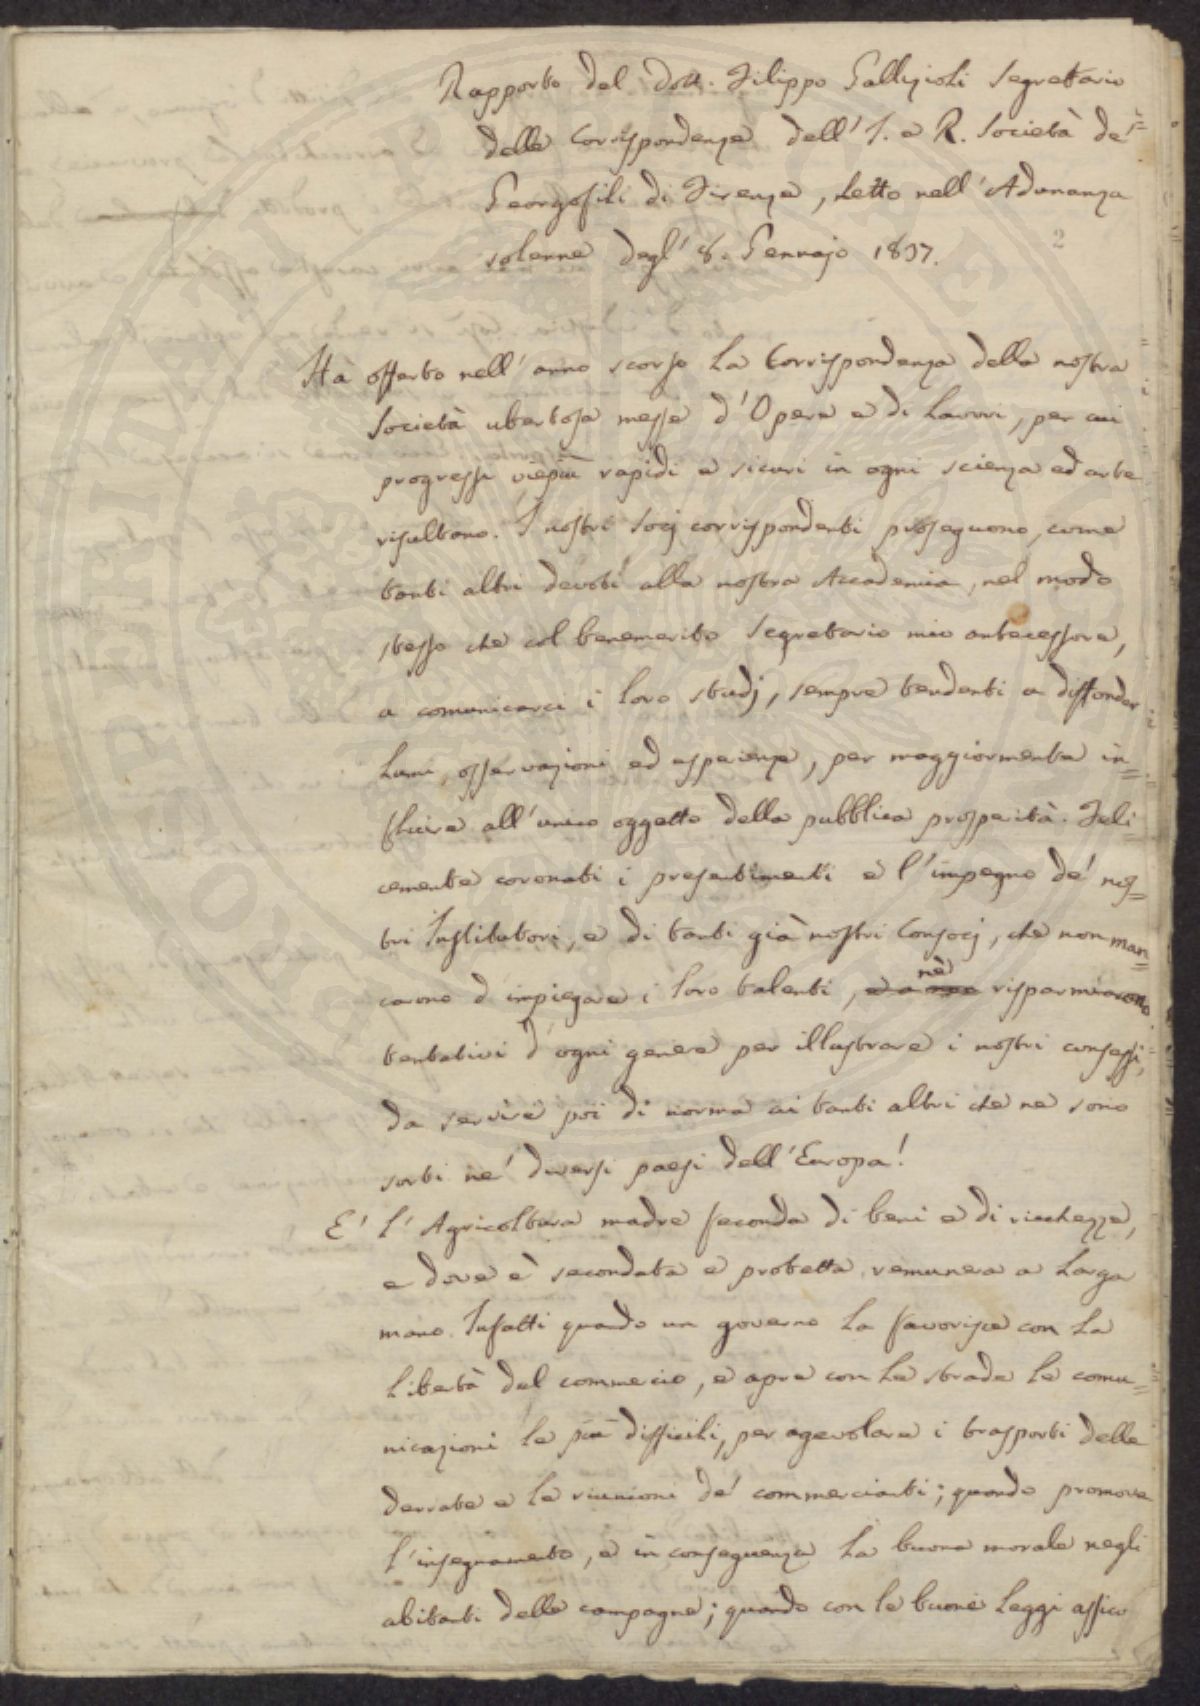 Rapporto del Dott. Filippo Gallizioli Segretario
delle Corrispondenze dell'I. e R. Società de'
Georgofili di Firenze, Letto nell'Adunanza
solenne degl' 8. Gennajo 1837.
2
Ha offerto nell'anno scorso la Corrispondenza della nostra
Società ubertosa messe d'Opere e di Lavori, per cui
progressi viepiù rapidi e sicuri in ogni scienza ed arte
risultano. I nostri Socj corrispondenti proseguono, come
tanti altri devoti alla nostra Accademia, nel modo
stesso che col benemerito Segretario mio antecessore,
a comunicarci i loro studj, sempre tendenti a diffonder
Lumi, osservazioni ed esperienze, per maggiormente in=
fluire all'unico oggetto della pubblica prosperità. Feli=
cemente coronati i presentimenti e l'impegno de' nos=
tri Institutori, e di tanti già nostri Consocj, che non man=
carono d'impiegare i loro talenti, nè risparmiarono
tentativi d'ogni genere per illustrare i nostri consessi,
da servire poi di norma ai tanti altri che ne sono
sorti ne' diversi paesi dell'Europa!
E' l'Agricoltura madre feconda di beni e di ricchezze,
e dove è secondata e protetta, remunera a larga
mano. Infatti quando un governo la favorisce con la
libertà del commercio, e apre con le strade le comu=
nicazioni le più difficili, per agevolare i trasporti delle
derrate e le riunioni de' commercianti; quando promove
l'insegnamento, e in conseguenza la buona morale negli
abitanti delle campagne; quando con le buone Leggi assicu